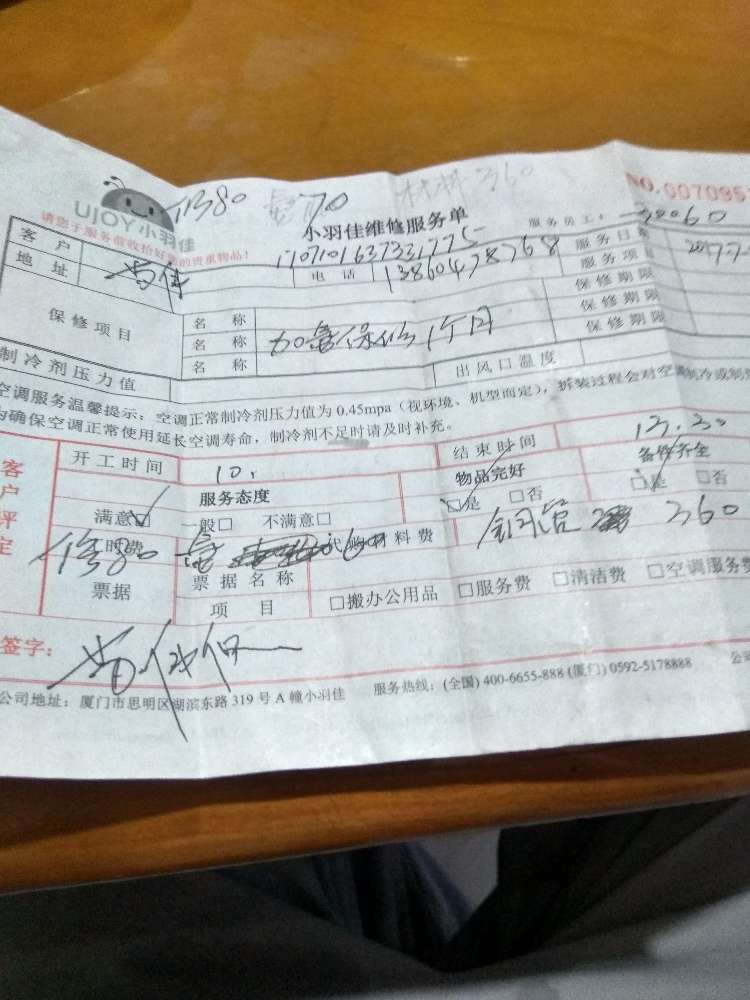 修80 70 材料360
NO.007095
UJOY小羽佳
小羽佳维修服务单
请您于服务前收拾好您的贵重物品!
服务员工: 30060
1707101637331775
客户
地址
电话 13860478768
服务日期
服务项
保修期限
保修期限
保修期限
保修项目
名称
名称 加氟保修1个月
名称
制冷剂压力值
出风口温度
空调服务温馨提示:空调正常制冷剂压力值为0.45mpa(视环境、机型而定),拆装过程会对空调制冷或制
为确保空调正常使用延长空调寿命,制冷剂不足时请及时补充。
客户评定
开工时间 10.
结束时间 12.30
服务态度
物品完好
备件齐全
满意☑ 一般□ 不满意□
☑是 □否
☑是 □否
工时费 修80
代购材料费 铜管 360
票据
票据名称
项目
□搬办公用品 □服务费 □清洁费 □空调服务费
签字:
公司地址:厦门市思明区湖滨东路319号A幢小羽佳 服务热线:(全国)400-6655-888(厦门)0592-5178888